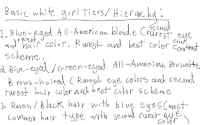 Basic white girl Tiers/Hierarchy:
1. Blue-eyed All-American blonde (rarest eye second
rarest hair color. Rarest and best color contrast
scheme.
2. Blue-eyed/Green-eyed All-American Brunette
Brown-haired (Rarest eye colors and second
rarest hair color and best color scheme
3. Raven/Black hair with blue eyes (most
common hair type with second rarest eye
color)